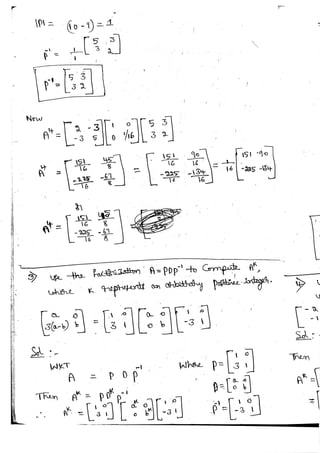 |P| = (10 - 9) = 1
P⁻¹ = 1/1 [5 3; 3 2]
P⁻¹ = [5 3; 3 2]
Now
A⁴ = [2 -3; -3 5] [1 0; 0 1/16] [5 3; 3 2]
A⁴ = [151/16 45/8; -225/16 -67/8] = [151/16 90/16; -225/16 -134/16] = 1/16 [151 90; -225 -134]
A⁴ = [151/16 45/8; -225/16 -67/8]
3) use the factorization A = PDP⁻¹ to compute Aᴷ,
where K represents an arbitrary positive Integer.
[a 0; 3(a-b) b] = [1 0; 3 1] [a 0; 0 b] [1 0; -3 1]
Sol :-
WKT
A = P D P⁻¹ Where P = [1 0; 3 1]
D = [a 0; 0 b]
Then Aᴷ = P Dᴷ P⁻¹
∴ Aᴷ = [1 0; 3 1] [aᴷ 0; 0 bᴷ] [1 0; -3 1] P⁻¹ = [1 0; -3 1]
4)
Sol :-
Then
Aᴷ =